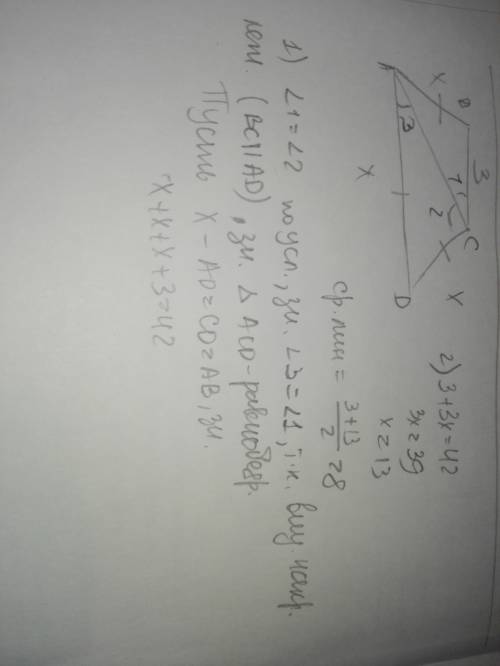 B
3
C
1
2
X
A
3
X
X
D
2) 3+3x=42
3x=39
x=13
ср. лин = 3+13/2 =8
1) ∠1=∠2 по усл., зн. ∠3=∠1, т.к. внут. накр.
леж. (BC||AD), зн. △ ACD-равнобедр.
Пусть X - AD=CD=AB, зн.
X+X+X+3=42